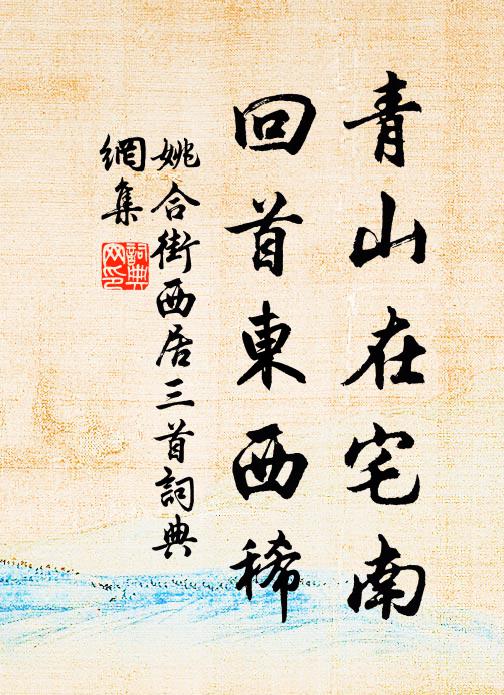 青山在宅南
回首東西稀
姚合街西居三首詞典
網集
詞典
网印